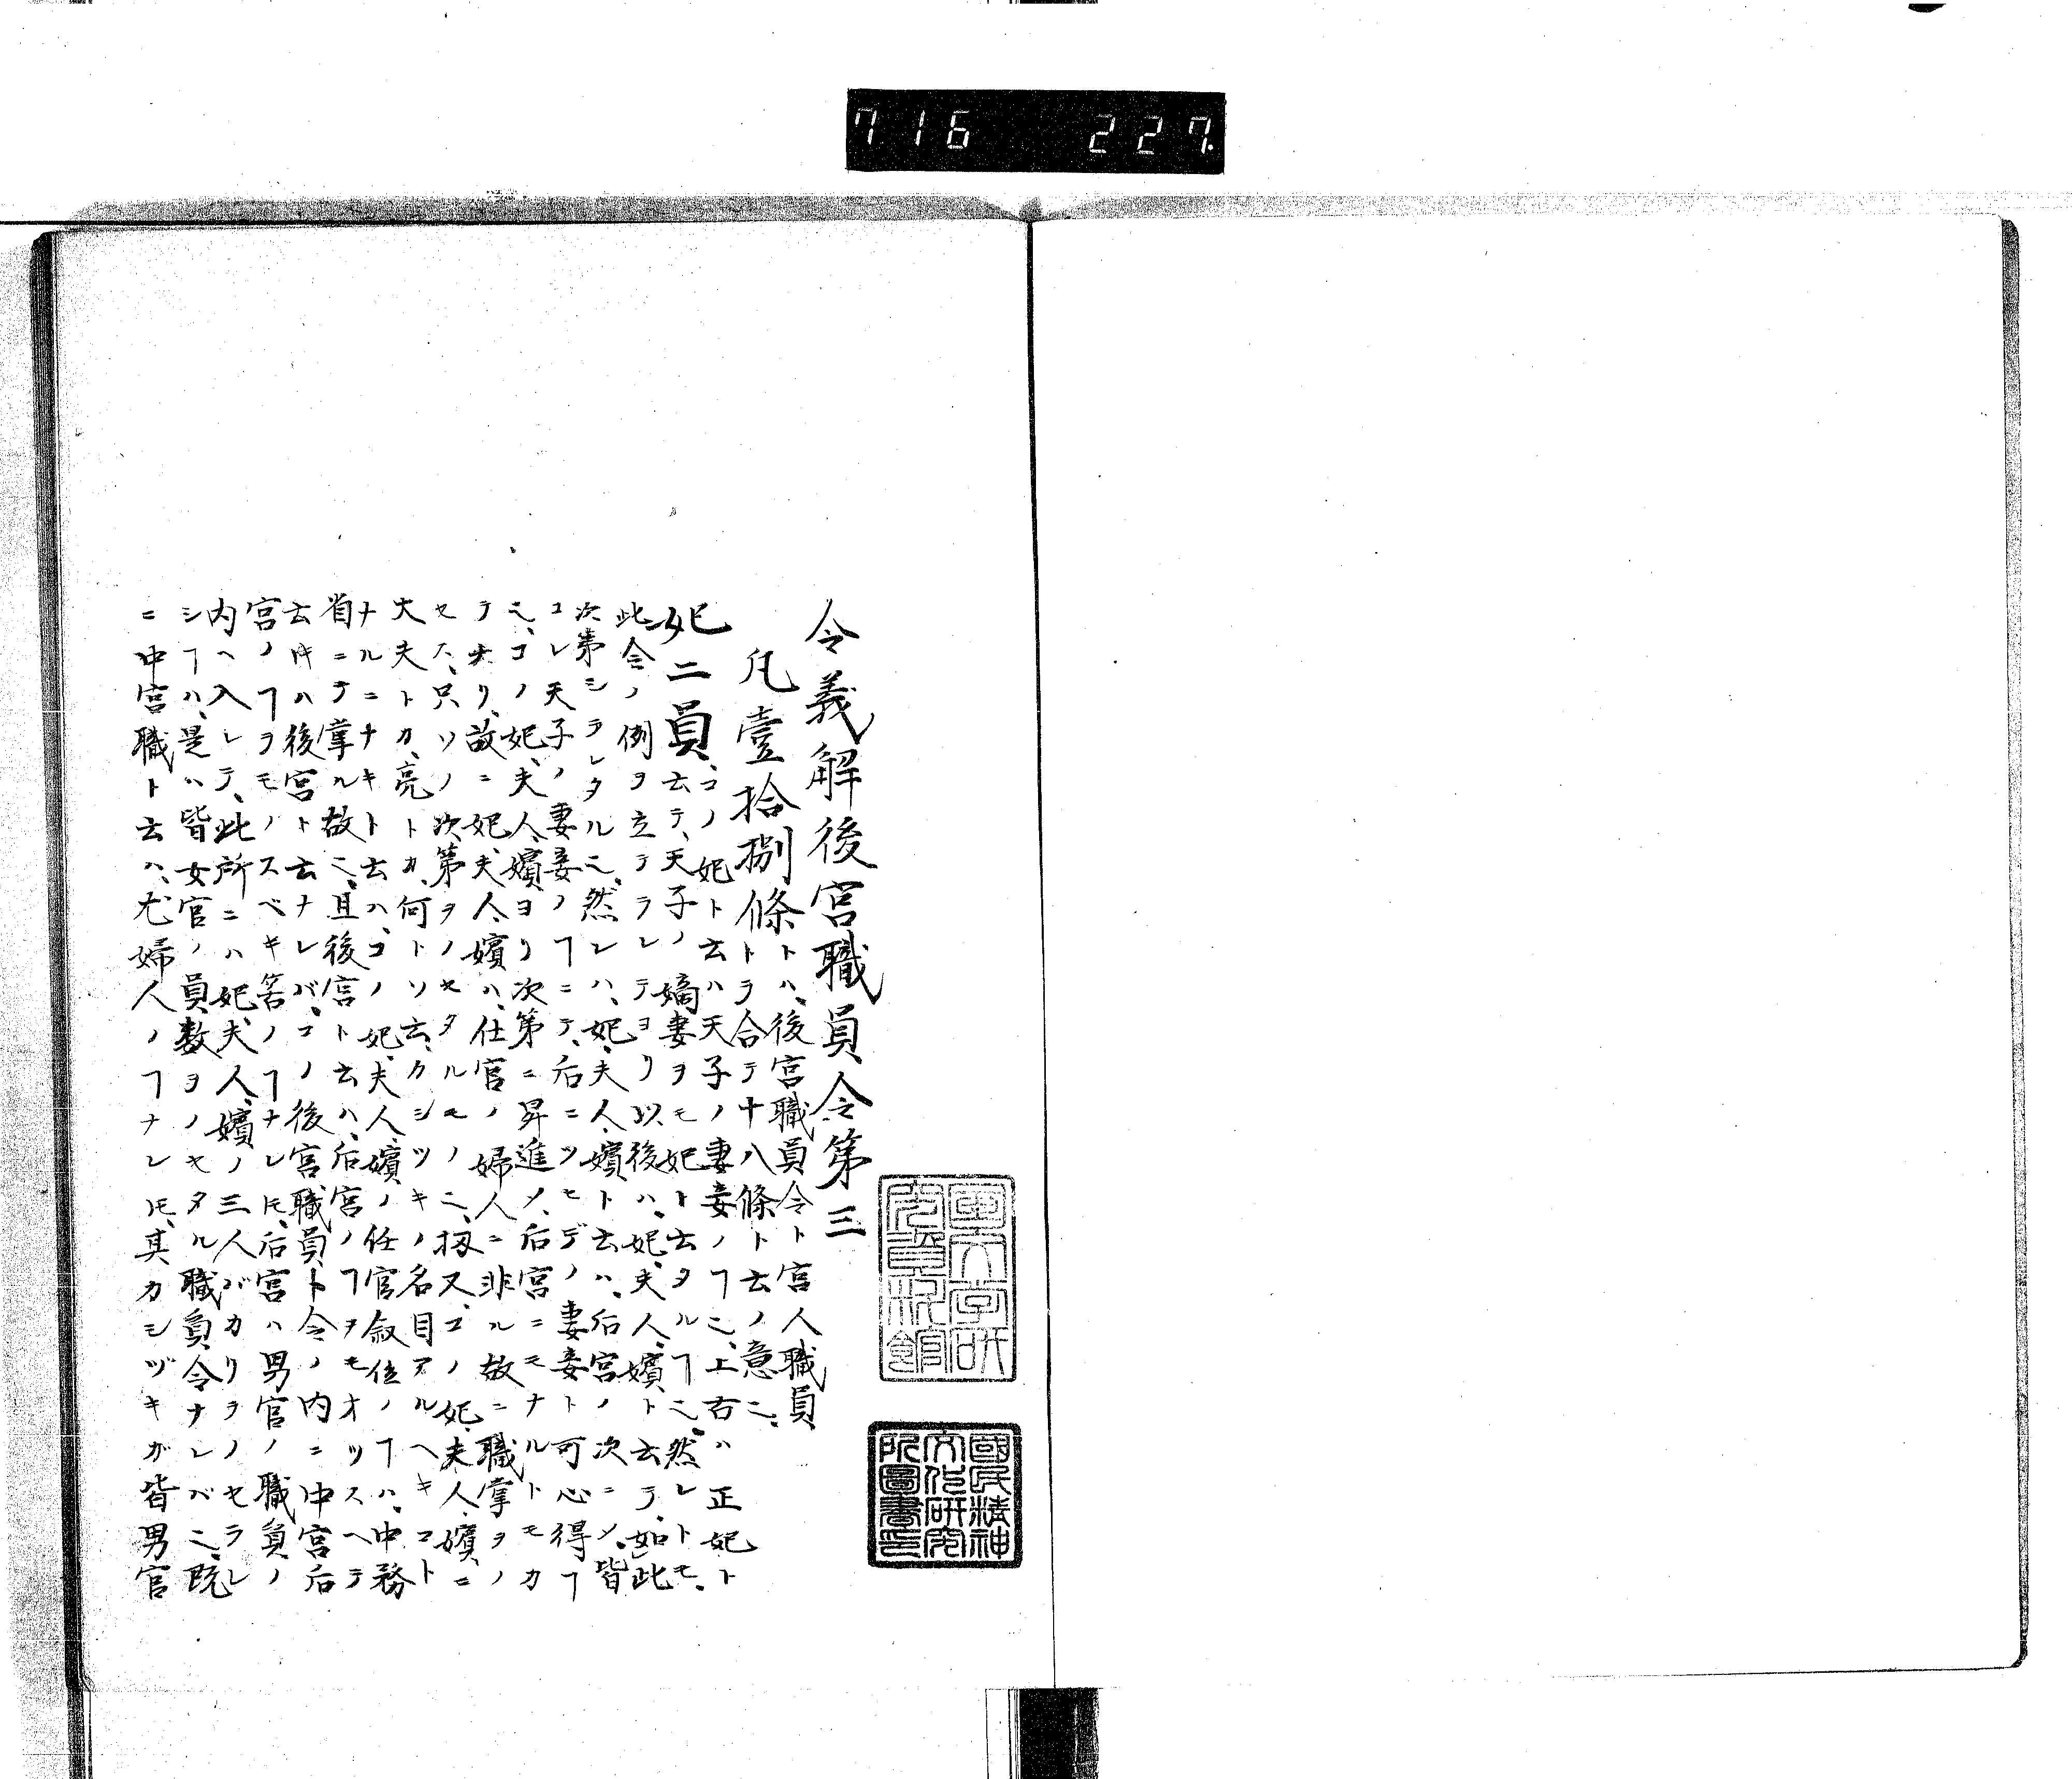 716 227.
令義解後宮職員令第三
トハ、後宮職員令ト宮人職員
凡壹拾捌條
トラ合テ十八條ト云ノ意ニ、
妃二員、
コノ妃ト云ハ天子ノ妻妾ノヿニ、上古ハ正妃ト
云テ、天子ノ嫡妻ヲモ妃ト云タルヿニ、然レトモ、
此令ノ例ヲ立テラレテヨリ以後ハ、妃、夫人、嬪ト云テ、如此
次第シラレタルニ、然レハ、妃、夫人、嬪ト云ハ、后宮ノ次ニメ、皆
コレ天子ノ妻妾ノヿニテ、后ニツヒデノ妻妾ト可心得ヿ
ニ、コノ妃、夫人、嬪ヨリ次第ニ昇進メ、后宮ニモナルトモカ
テ夫リ、故ニ妃、夫人、嬪ハ、任官ノ婦人ニ非ル故ニ職掌ヲノ
セス、只ソノ次第ヲノセタルモノニ、扨又、コノ妃、夫人、嬪ニ
大夫トカ、亮トカ、何トソ云、カシツキノ名目アルヘキコト
ナルニナキト云ハ、コノ妃、夫人、嬪ノ任官叙位ノヿハ、中務
省ニテ掌ル故ニ、且後宮ト云ハ、后宮ノヿヲモオツスヘテ
云ヰハ後宮ト云ナレバ、コノ後宮職員ト令ノ内ニ中宮后
宮ノヿヲモノスベキ筈ノヿナレ𪜈、后宮ハ男官ノ職員ノ
内ヘ入レテ、此所ニハ妃、夫人、嬪ノ三人バカリヲノセラレ
シヿハ、是ハ皆女官ノ員数ヲノセタル職員令ナレバニ、既
ニ中宮職ト云ハ、尤婦人ノヿナレ𪜈、其カシヅキガ皆男官
國民精神
文化研究
所圖書印